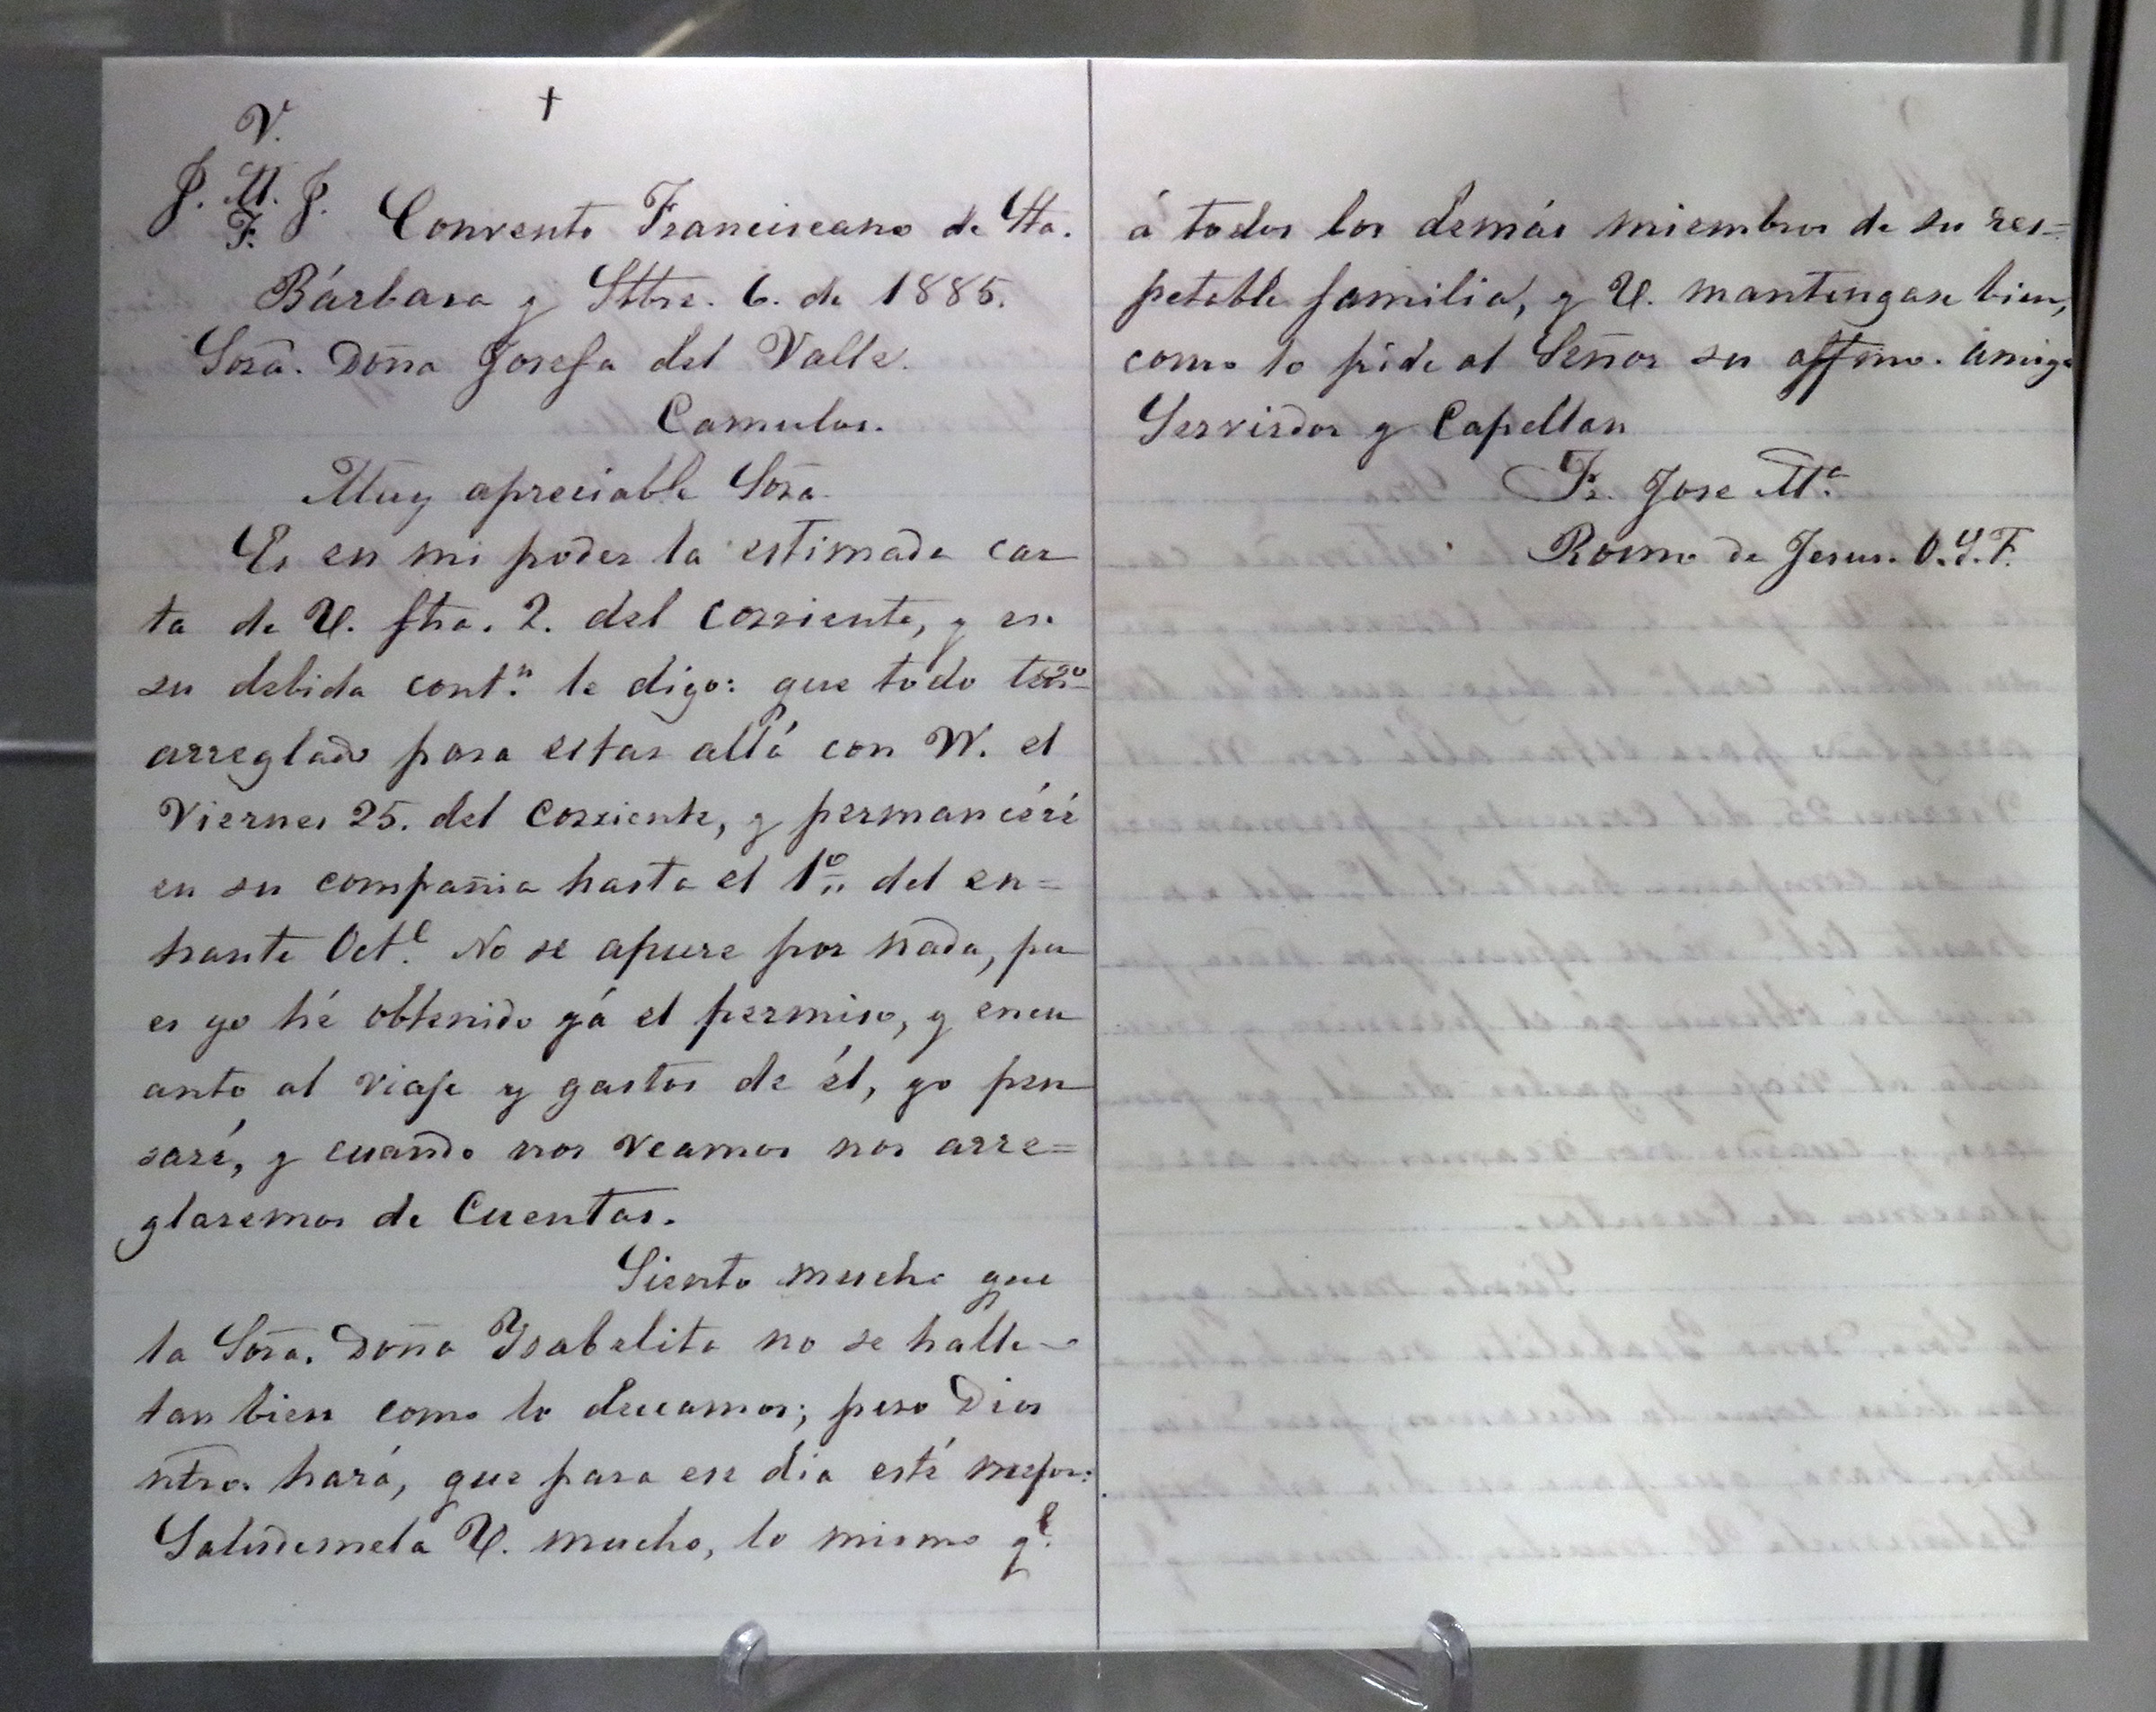 †
V.
J. M. J.
F.
Convento Franciscano de Sta.
Bárbara y Stbre. 6. de 1885.
Sora. Doña Josefa del Valle.
Camulos.
Muy apreciable Sora.
Es en mi poder la estimada car
ta de U. fha. 2. del corriente, y en
su debida cont.n le digo: que todo
arreglado para estar allá con VV. el
Viernes 25. del corriente, y permaneceré
en su compañia hasta el 1º. del en=
trante Oct.e No se apure por nada, pu
es yo hé obtenido yá el permiso, y encu
anto al viaje y gastos de él, yo pen
saré, y cuando nos veamos nos arre=
glaremos de Cuentas.
Siento mucho que
la Sora. Doña Ysabelita no se halle
tan bien como lo deceamos; pero Dios
ntro. hará, que para ese dia esté mejor:
Saludemela U. mucho, lo mismo q.e
á todos los demás miembros de su res=
petable familia, y U. mantengase bien,
como lo pide al Señor su affmo. amigo
Servidor y Capellan
Fr. Jose Ma.
Romo de Jesus. O.S.F.